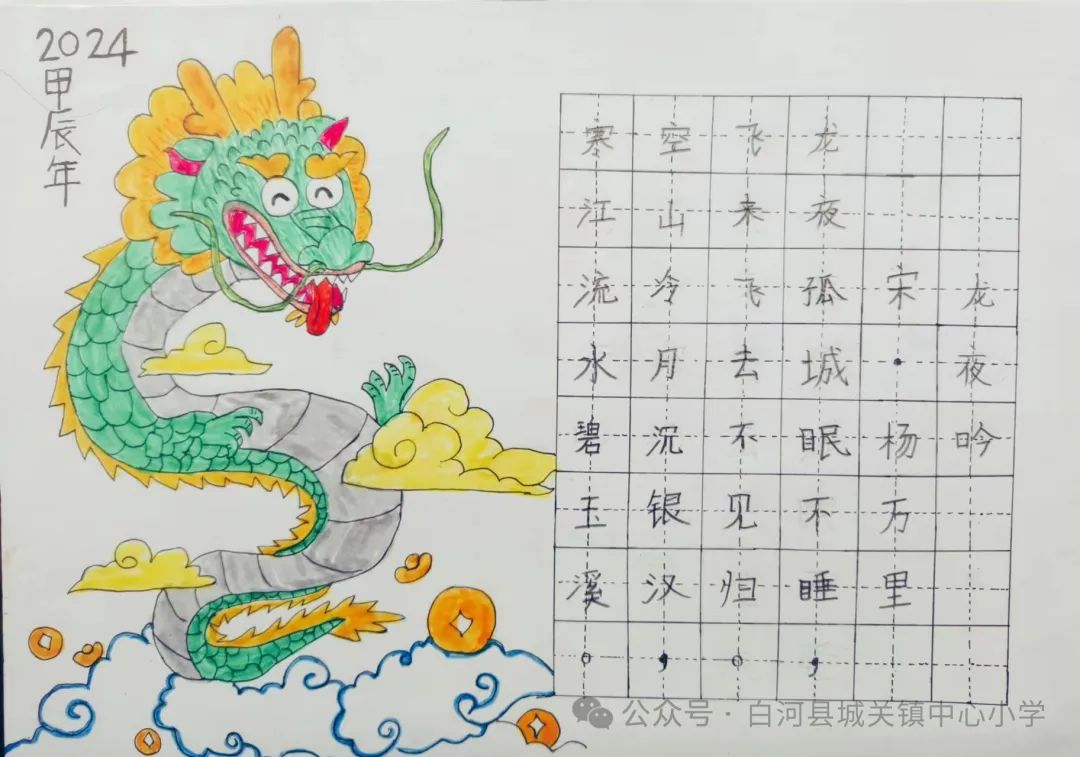 2024
甲辰年
龙夜吟
宋·杨万里
龙夜孤城眠不睡，
飞来飞去不见归。
空山冷月沉银汉，
寒江流水碧玉溪。
公众号·白河县城关镇中心小学